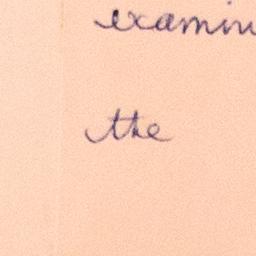 examin
the